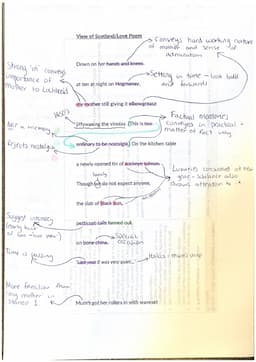 View of Scotland/Love Poem
Conveys hard working nature
of mother and sense of
admiration
Down on her hands and knees
Strong 'm' conveys
importance of
mother to Lochhead
at ten at night on Hogmanay,
Setting in time - look back
and forwards
my mother still giving it elbowgrease
jiffywaxing the vinolay. (This is too
Factual nostalgic
conveyed in practical -
matter of fact way
is a memory
Rejects nostalgia
ordinary to be nostalgia). On the kitchen table
a newly opened tin of sockeye salmon.
Though we do not expect anyone,
family
Luxuries consumed at new
year - sibilance also
draws attention to it
the slab of black bun,
Suggest intimacy
petticoat-tails fanned out
on bone china.
special
occasion
Time is passing
'Last year it was very quiet...'
Italics - mum's voice
More familiar than
'my mother' in
stanza 1.
Mum's got her rollers in with waveset